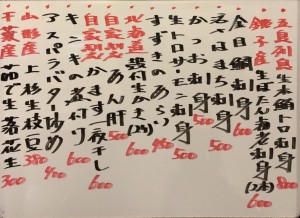 五島列島 生本鮪トロ刺身 800
銚子産 生ぼたん海老刺身(2本) 600
金目鯛刺身 600
活〆さば刺身 500
かつお刺身 500
生トロサーモン刺身 500
すずめうり 450
北海道 殻付生かき(2ケ) 600
自家製 あん肝 500
自家製 かます一夜干し 600
キンキの煮付け 600
アスパラバター炒め 400
山形産 上杉生枝豆 380
千葉産 茹で生落花生 300